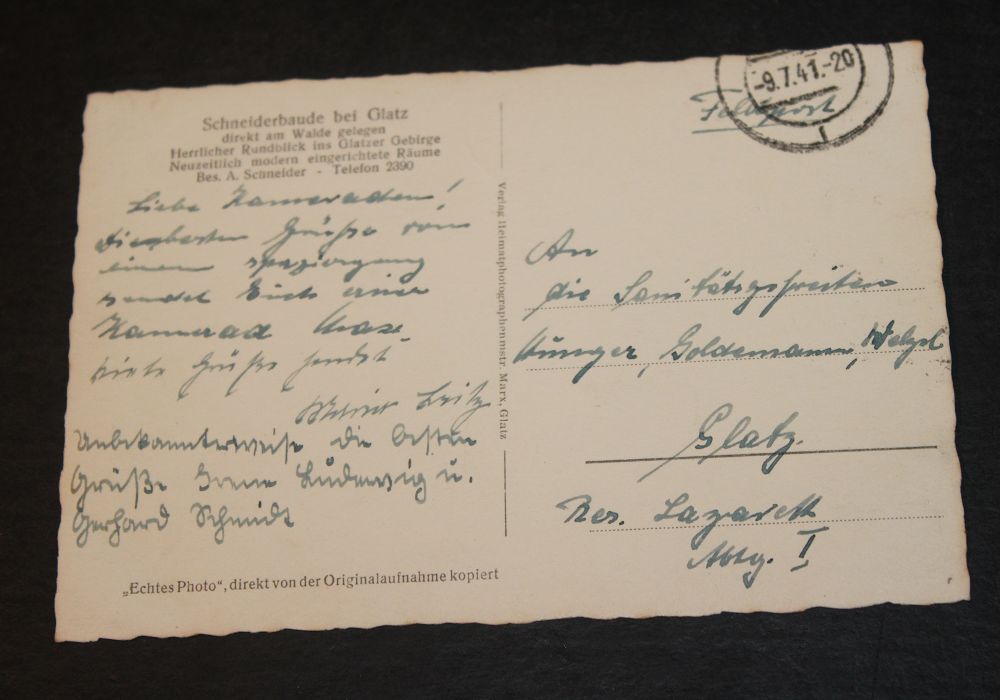 Schneiderbaude bei Glatz
direkt am Walde gelegen
Herrlicher Rundblick ins Glatzer Gebirge
Neuzeitlich modern eingerichtete Räume
Bes. A. Schneider - Telefon 2390
Liebe Kameraden!
Grüße vom
einem spaziergang
sendet Euch einer
Kamerad
viele Grüße sendet
Fritz
Unbekannterweise die besten
Grüße Irene Ludewig u.
Gerhard Schmidt
„Echtes Photo“, direkt von der Originalaufnahme kopiert
Verlag Heimatphotographenmstr. Marx, Glatz
-9.7.41.-20
Feldpost
An
die Sanitätsgefreiten
Hunger, Goldemann, Welzel
Glatz.
Res. Lazarett
Abtg. I